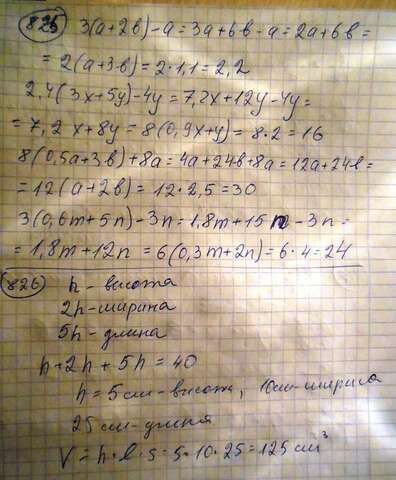 825 3(a+2b)-a=3a+6b-a=2a+6b=
=2(a+3b)=2·1,1=2,2
2,4(3x+5y)-4y=7,2x+12y-4y=
=7,2x+8y=8(0,9x+y)=8·2=16
8(0,5a+3b)+8a=4a+24b+8a=12a+24b=
=12(a+2b)=12·2,5=30
3(0,6m+5n)-3n=1,8m+15n-3n=
=1,8m+12n=6(0,3m+2n)=6·4=24
826 h-высота
2h-ширина
5h-длина
h+2h+5h=40
h=5см-высота, 10см-ширина
25см-длина
V=h·l·s=5·10·25=125см³